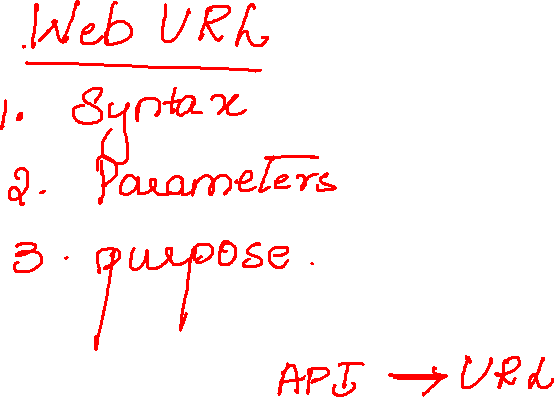 Web URL
1. Syntax
2. Parameters
3. purpose.
API → URL